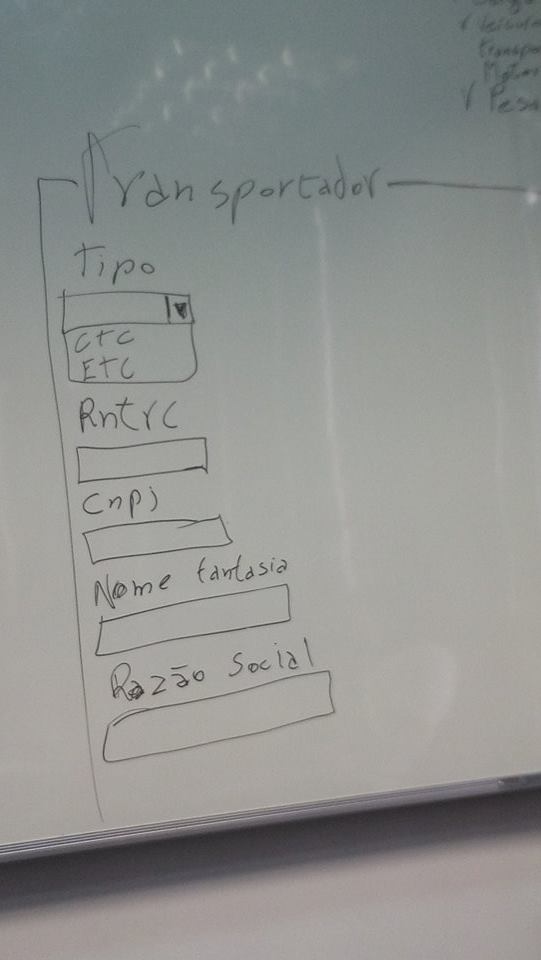 Transportador
Tipo
CTC
ETC
Rntrc
Cnpj
Nome fantasia
Razão Social